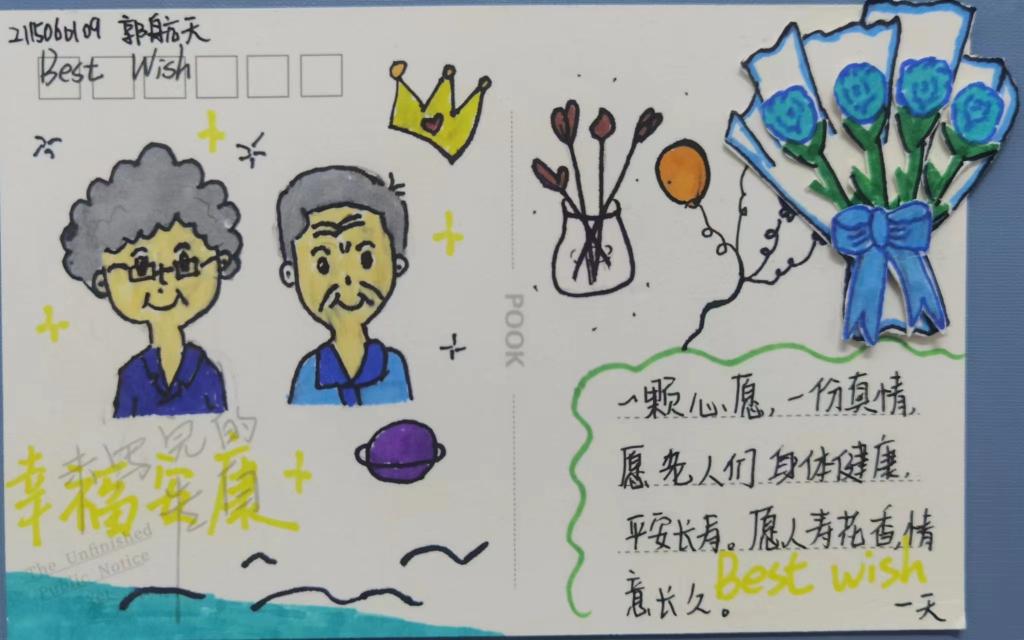 2115060109 郭航天
Best Wish
POOK
幸福安康
The Unfinished
Public Notice
一颗心愿，一份真情，
愿老人们身体健康，
平安长寿。愿人寿花香，情
意长久。
Best wish
一天